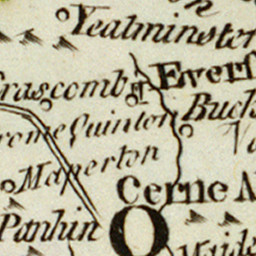 Yealminster
Evers
rascomb
Buck
rome Quinton
Maperton
Cerne A
Panhin
Maide